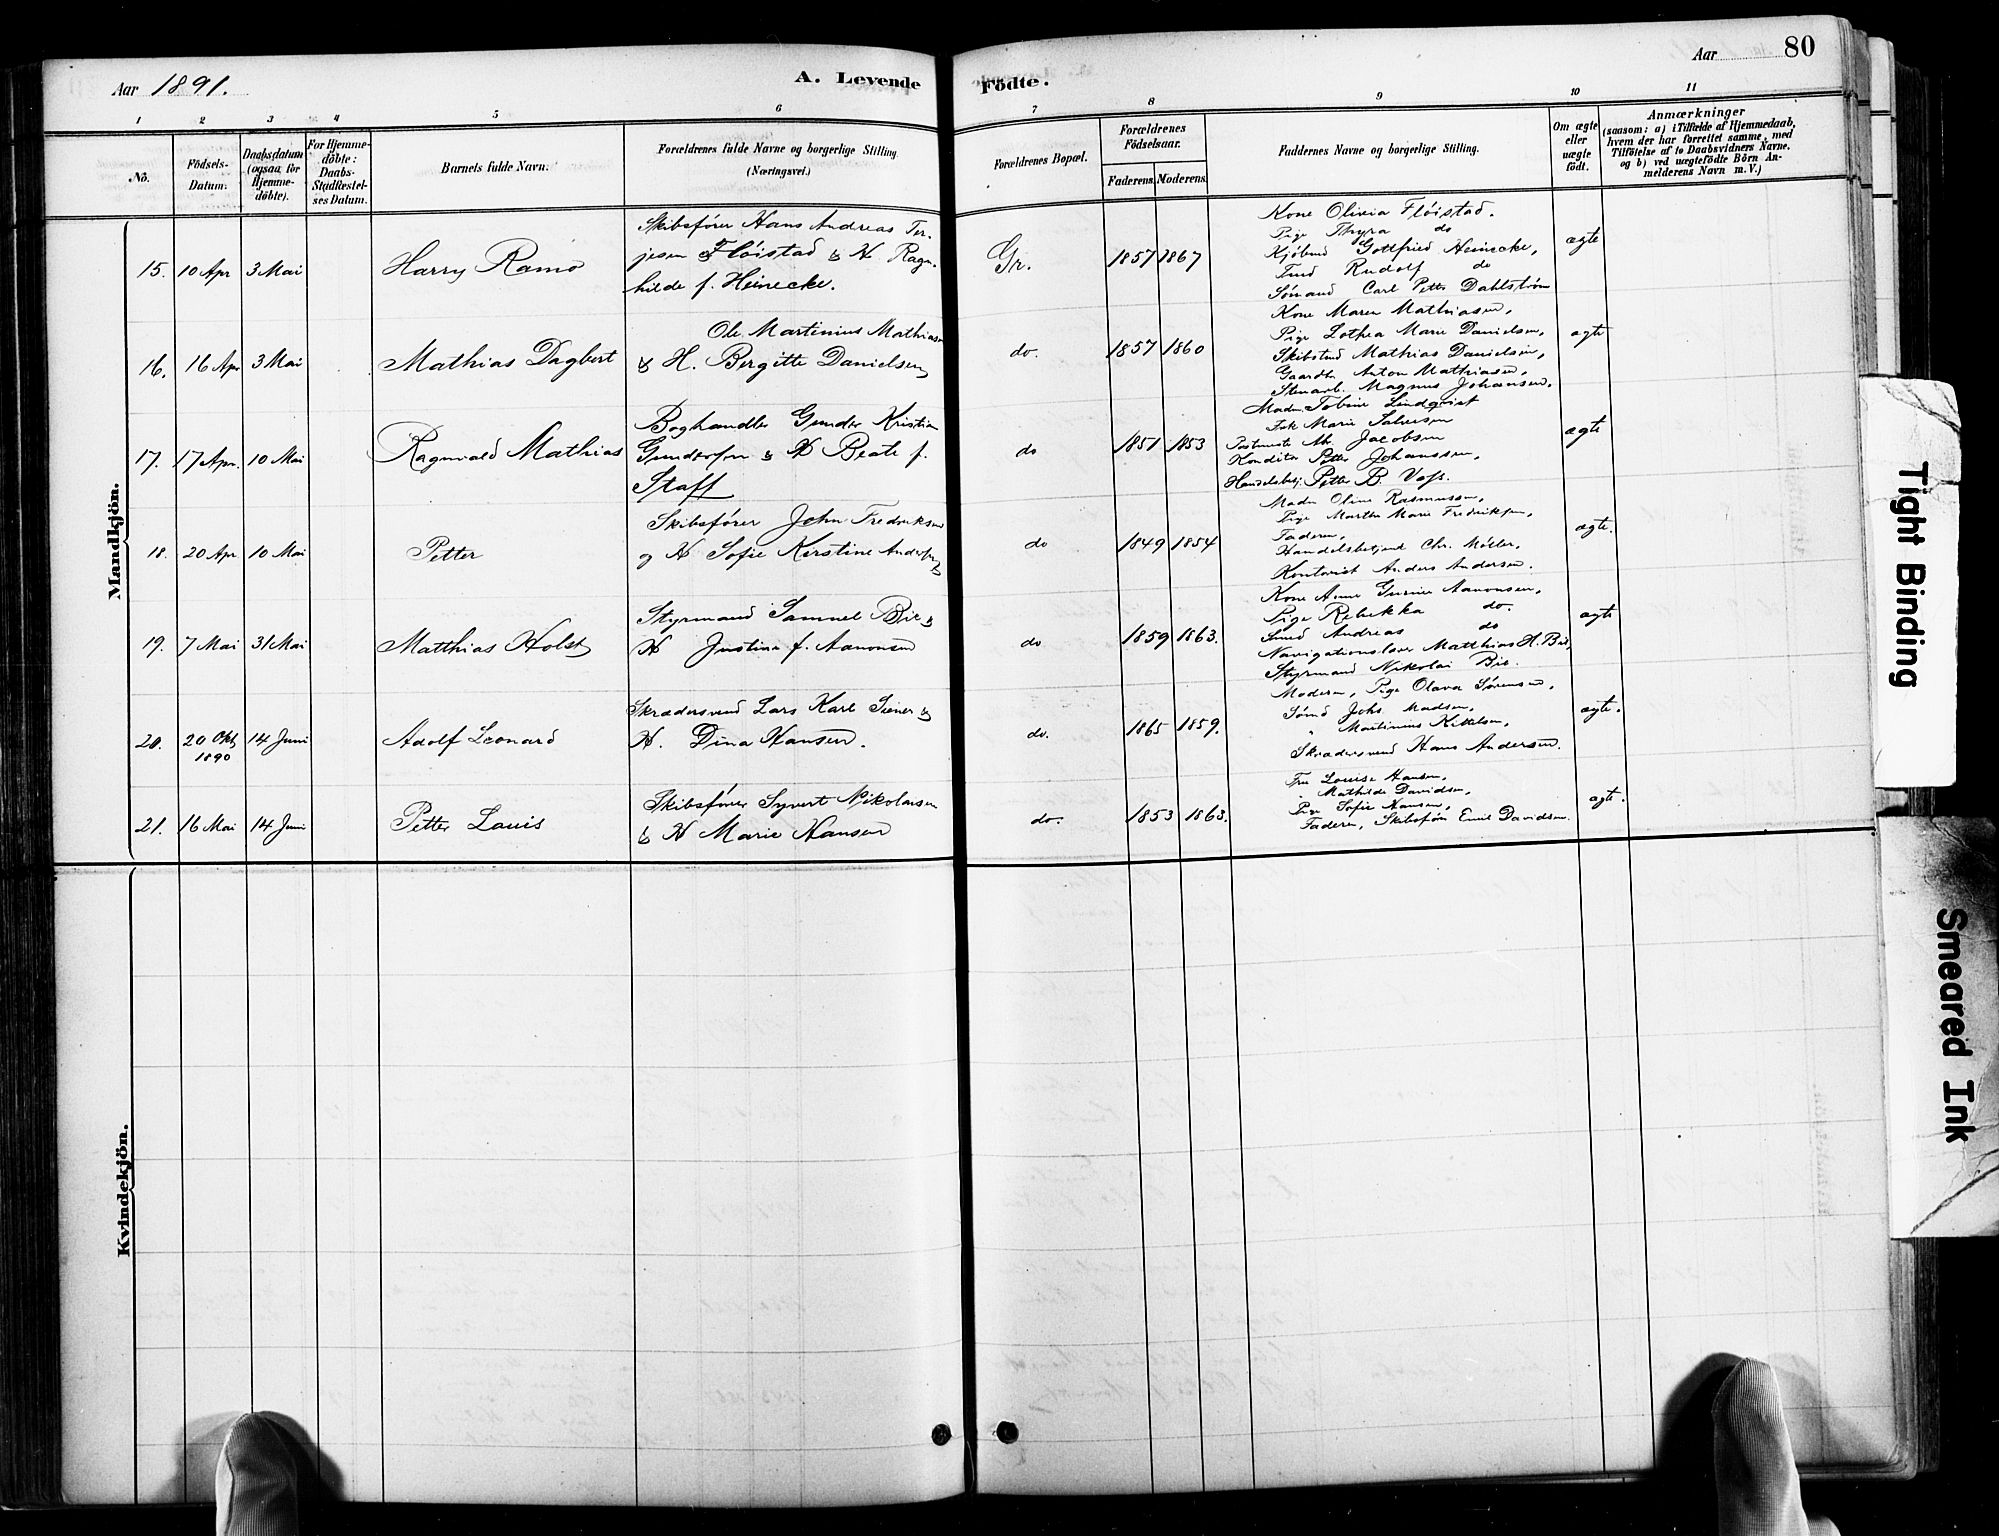 Aar 1891.
A. Levende
Födte.
Aar
80
1
2
3
4
5
6
7
8
9
10
11
No.
Födsels-
Datum.
Daabsdatum
(ogsaa for
Hjemme-
döbte).
For Hjemme-
döbte:
Daabs-
Stadfæstel-
ses Datum.
Barnets fulde Navn.
Forældrenes fulde Navne og borgerlige Stilling
(Næringsvei.)
Forældrenes Bopæl.
Forældrenes
Födselsaar.
Faderens.
Moderens.
Faddernes Navne og borgerlige Stilling.
Om ægte
eller
uægte
födt.
Anmærkninger
(saasom: a) i Tilfælde af Hjemmedaab,
hvem der har forrettet samme, med
Tilföielse af to Daabsvidners Navne,
og b) ved uægtefödte Börn An-
melderens Navn m. V.)
Mandkjön.
15. 10 Apr 3 Mai
Harry Ramo
Skibsfører Hans Andreas Ter-
jesen Fløistad & H Ragn-
hilde f. Heinecke.
Gr.
1857 1867
Kone Olivia Fløistad.
Pige Thyra do
Kjøbmd Gottfried Heinecke,
Rudolf do
Carl Petter Dahlstrøm
ægte
16. 16 Apr 3 Mai
Mathias Dagbert
Ole Martinius Mathias
& H. Bergitte Danielsen
do.
1857 1860
Kone Maren Mathiasen,
Pige Lothea Marie Danielsen,
Skibstmd Mathias Danielsen,
Gaardbr Anton Mathiasen,
Stenarb. Magnus Johansen.
ægte
17. 17 Apr. 10 Mai
Ragnvald Mathias
Boghandler Gunder Kristian
Gundersen & H Beate f.
Staff
do
1851 1853
Madm. Tobine Lindqvist
Frk Marie Salvesen
Jacobsen
Konditor Petter Johanssen,
Handelsbetj. Petter B. Voss.
ægte
18. 20 Apr 10 Mai
Petter
Skibsfører John Fredriksen
og H Sofie Kirstine Anders
do
1849 1854
Madm Oline Rasmussen,
Pige Marthe Marie Fredriksen,
Faderen,
Handelsbetjent Chr. Møller,
Kontorist Anders Andersen.
ægte.
19. 7 Mai 31 Mai
Matthias Holst
Styrmand Samuel Bie &
H Justine f. Aanonsen
do
1859 1863.
Kone Anne Gurine Aanonsen,
Pige Rebekka do.
Smed Andreas do
Navigationslærer Matthias H. Bie,
Styrmand Nikolai Bie.
ægte
20. 20 Okt 14 Juni
1890
Adolf Leonard
Skrædersvend Lars Karl &
H. Dina Hansen.
do.
1865 1859.
Moderen, Pige Olava Sørensen,
Sømd Johs Madsen,
" Martinius Kittelsen,
Skrædersvend Hans Andersen.
ægte.
21. 16 Mai 14 Juni
Petter Louis
Skibsfører Syvert Nikolaisen
& H Marie Hansen
do.
1853 1863.
Fru Louise Hansen,
" Mathilde Davidsen,
Pige Sofie Hansen,
Faderen, Skibsfører Emil Davidsen.
ægte.
Kvindekjön.
Tight Binding
Smeared Ink